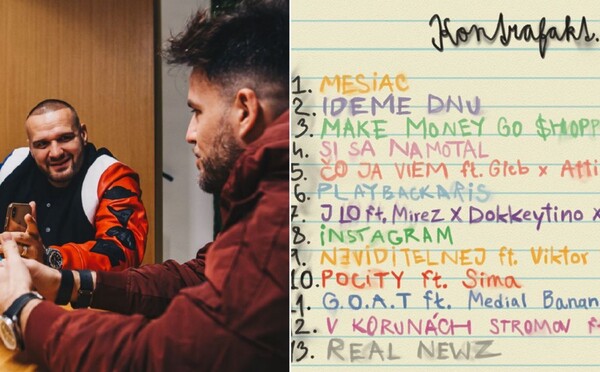 Kontrafakt.
1. MESIAC
2. IDEME DNU
3. MAKE MONEY GO $HOPP
4. SI SA NAMOTAL
5. ČO JA VIEM ft. Gleb x Atti
6. PLAYBACKARiS
7. J LO ft. Mirez x Dokkeytino x
8. iNSTAGRAM
9. NEVIDITEĽNEJ ft. Viktor
10. POCiTY ft. Sima
11. G.O.A.T ft. Medial Banan
12. V KORUNÁCH STROMOV f
13. REAL NEWZ